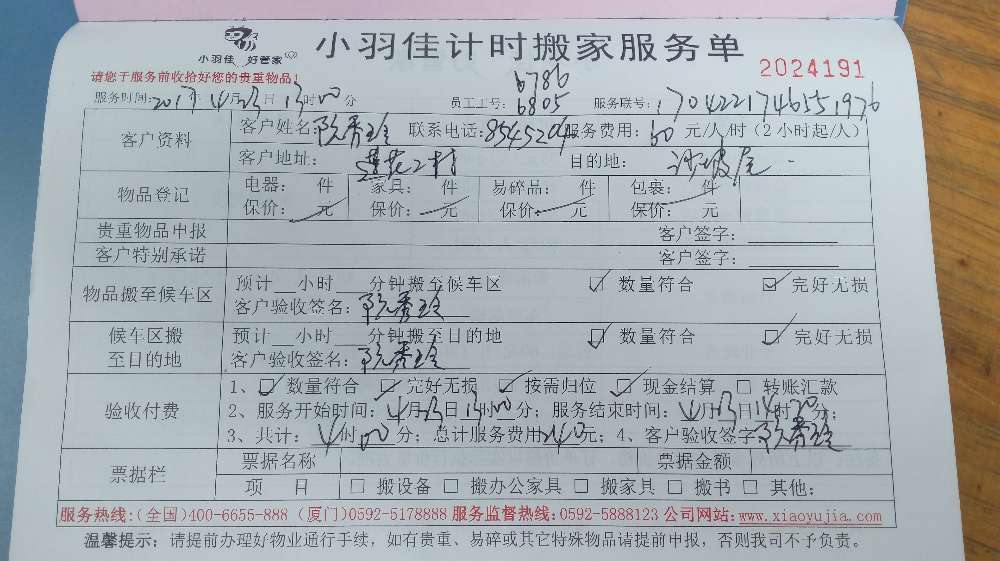 小羽佳 好管家
小羽佳计时搬家服务单
请您于服务前收拾好您的贵重物品!
2024191
6786
服务时间:2017年4月23日13时00分 员工工号:6805 服务联号:1704221746551976
客户资料
客户姓名:阮秀玲 联系电话:8545204 服务费用:60元/人/时(2小时起/人)
客户地址:莲花二村 目的地:沙坡尾
物品登记
电器: 件 家具: 件 易碎品: 件 包裹: 件
保价: 元 保价: 元 保价: 元 保价: 元
贵重物品申报 客户签字:
客户特别承诺 客户签字:
物品搬至候车区
预计__小时__分钟搬至候车区 ☑ 数量符合 ☑ 完好无损
客户验收签名:阮秀玲
候车区搬至目的地
预计__小时__分钟搬至目的地 ☑ 数量符合 ☑ 完好无损
客户验收签名:阮秀玲
验收付费
1、☑ 数量符合 ☑ 完好无损 ☑ 按需归位 ☑ 现金结算 □ 转账汇款
2、服务开始时间:4月23日13时00分;服务结束时间:4月23日14时30分;
3、共计:4时00分;总计服务费用240元;4、客户验收签字阮秀玲
票据栏
票据名称 票据金额
项 目 □ 搬设备 □ 搬办公家具 □ 搬家具 □ 搬书 □ 其他:
服务热线:(全国)400-6655-888 (厦门)0592-5178888 服务监督热线:0592-5888123 公司网站:www.xiaoyujia.com
温馨提示:请提前办理好物业通行手续,如有贵重、易碎或其它特殊物品请提前申报,否则我司不予负责。